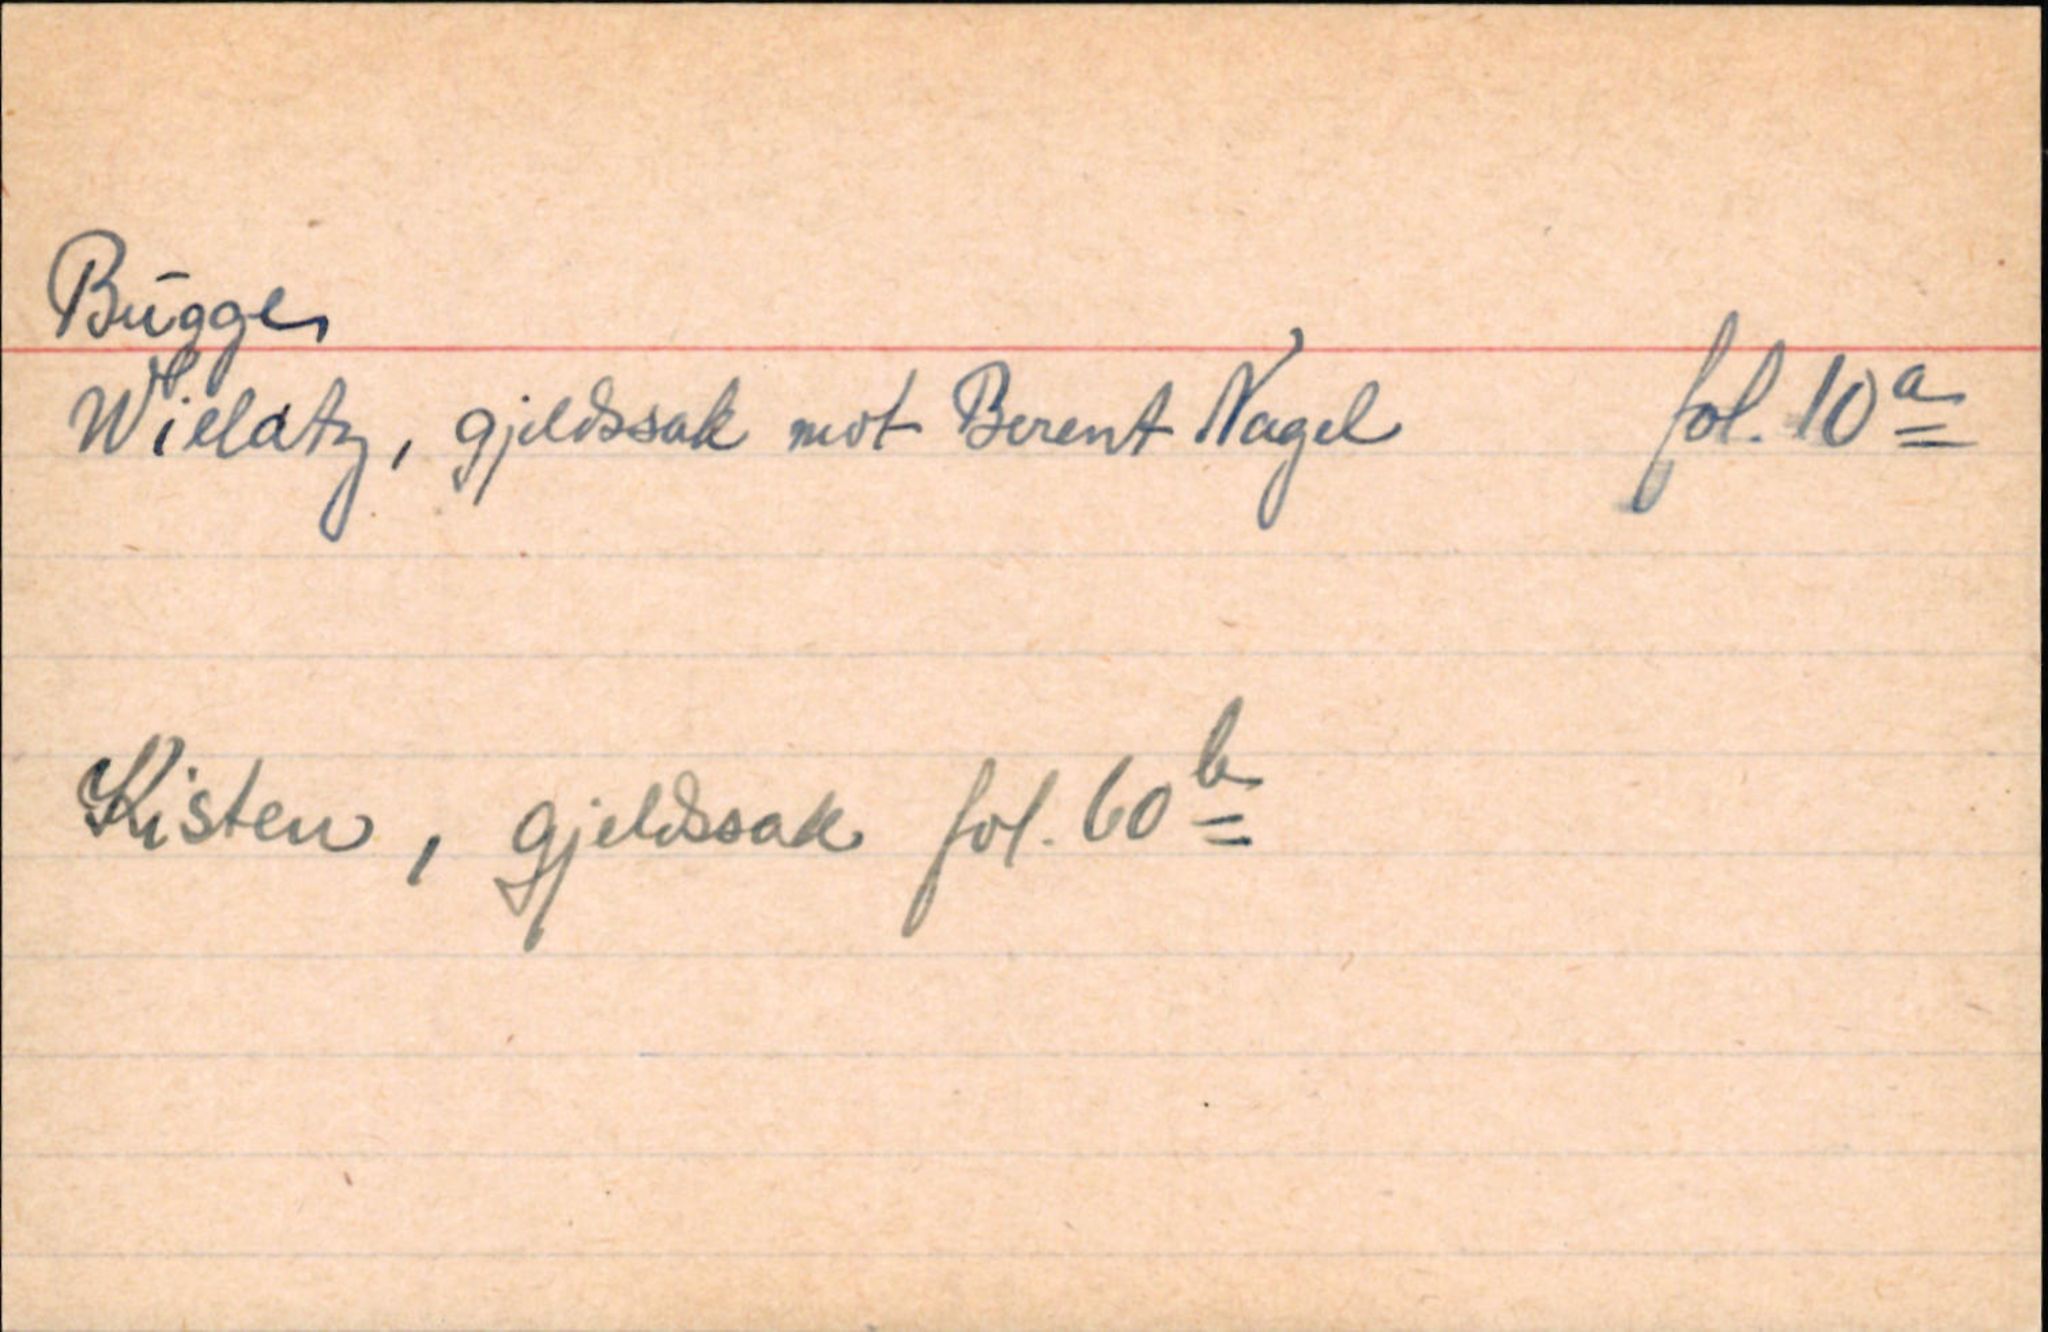 Bugge,
Wielatz, gjeldssak mot Berent Nagel fol. 10a
Kisten, gjeldssak fol. 60b